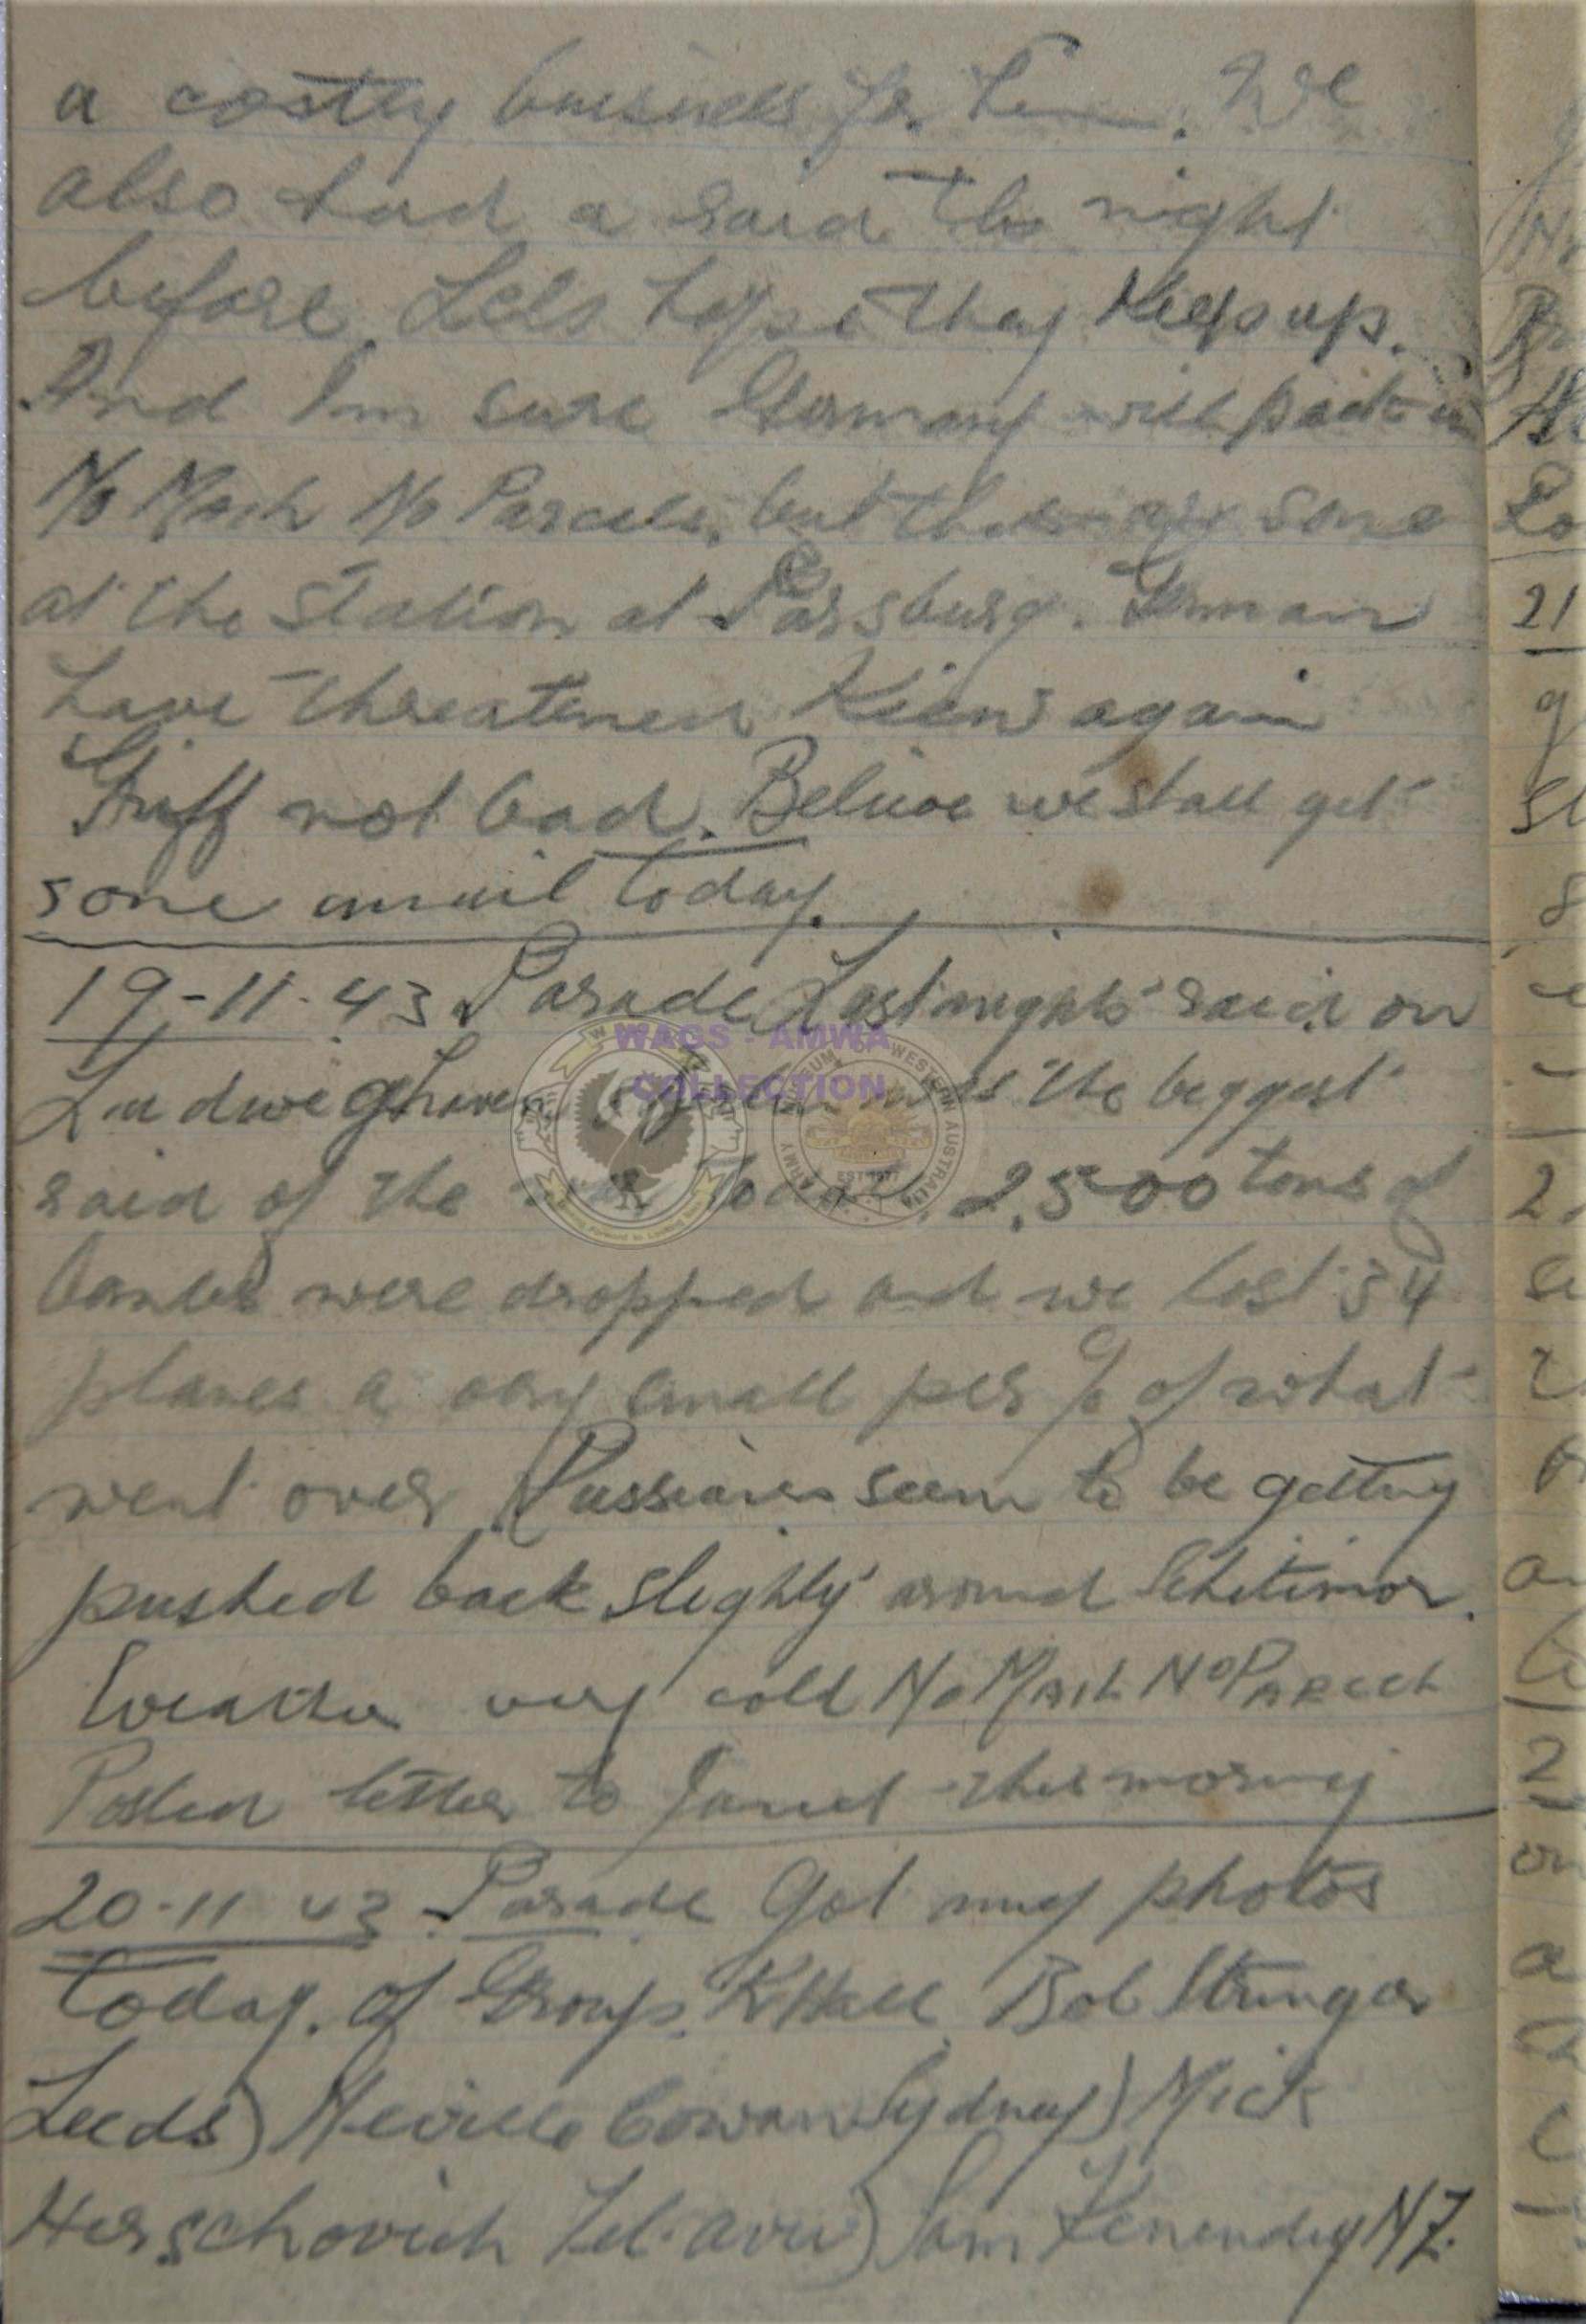 a costly buisness for him. We
also had a raid the night
before. Lets hope they keep up.
And Im sure Germany will pack in
No Mail No Parcels, but there are some
at the station at Parsburg. German
have threatened Kiew again
Griff not bad. Believe we shall get
some mail today.
19-11-43 Parade Last nights raid on
Ludwieghaven was the biggest
raid of the 2,500 tons of
bombs were dropped and we lost 34
planes a very small per % of what
went over Russians seem to be getting
pushed back slighly around
Weather very cold No MAIL No PARCEL
Posted letter to Janet this morning
20-11 43 Parade Got my photos
today. of Group. K Hall Bob Stringer
Leeds) Neville Cowan Sydney) Mick
Herschovich Tel-aviv) Sam Kenendey NZ.
WAGS - AMWA
COLLECTION